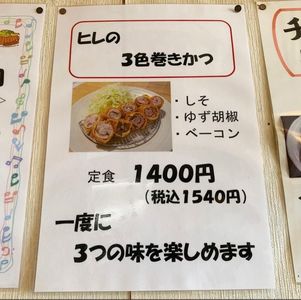 ヒレの
3色巻きかつ
・しそ
・ゆず胡椒
・ベーコン
定食 1400円
(税込1540円)
一度に
3つの味を楽しめます
チ